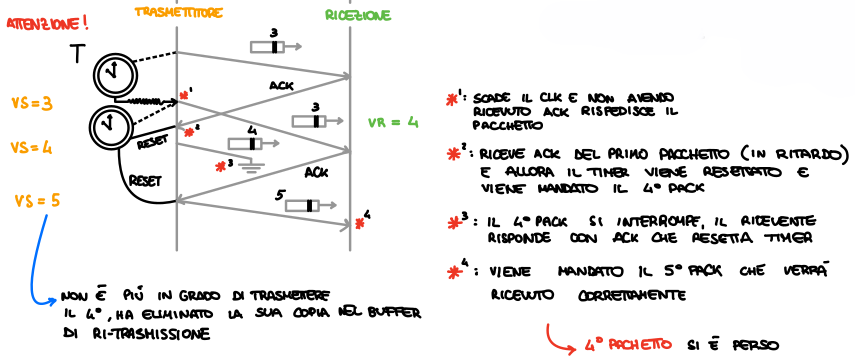 ATTENZIONE!
TRASMETTITORE
RICEZIONE
T
3
ACK
VS=3
*1
3
VR = 4
*2
RESET
4
VS=4
*3
ACK
RESET
5
VS = 5
*4
NON È PIÙ IN GRADO DI TRASMETTERE
IL 4°, HA ELIMINATO LA SUA COPIA NEL BUFFER
DI RI-TRASMISSIONE
*1: SCADE IL CLK E NON AVENDO
RICEVUTO ACK RISPEDISCE IL
PACCHETTO
*2: RICEVE ACK DEL PRIMO PACCHETTO (IN RITARDO)
E ALLORA IL TIMER VIENE RESETTATO E
VIENE MANDATO IL 4° PACK
*3: IL 4° PACK SI INTERROMPE, IL RICEVENTE
RISPONDE CON ACK CHE RESETTA TIMER
*4: VIENE MANDATO IL 5° PACK CHE VERRÀ
RICEVUTO CORRETTAMENTE
4° PACHETTO SI È PERSO